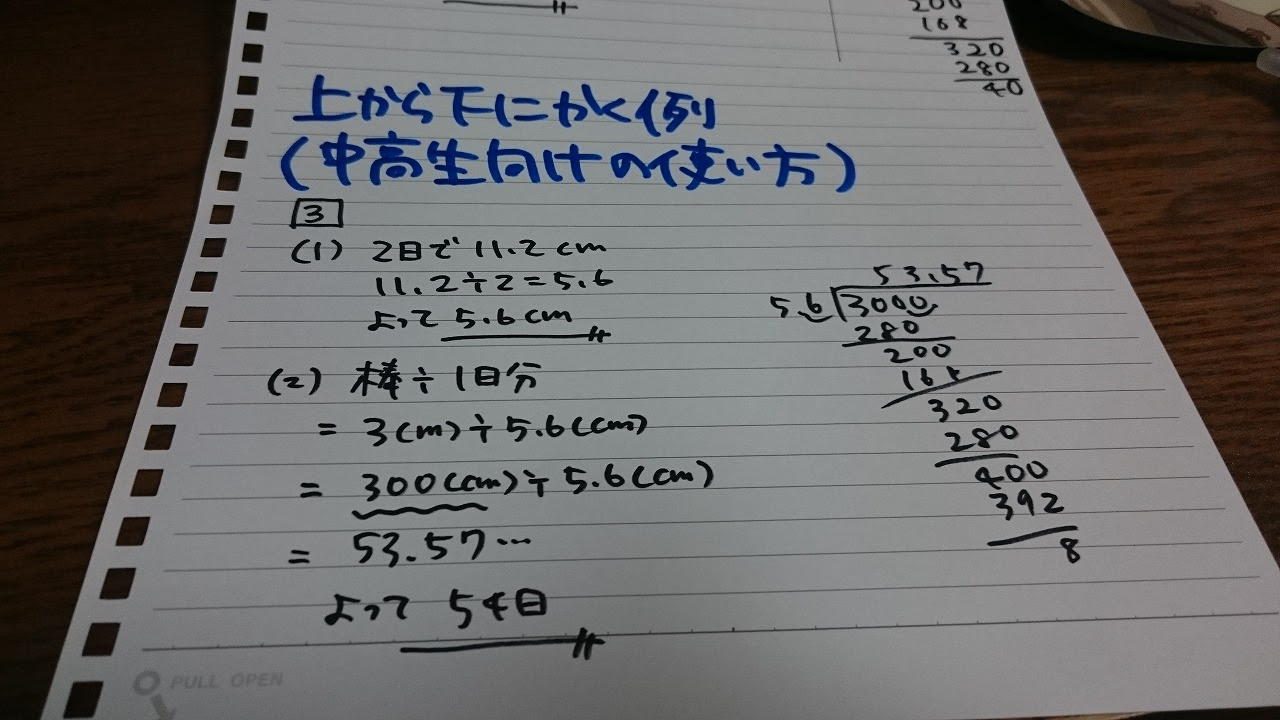 200
168
320
280
40
上から下にかく例
(中高生向けの使い方)
3
(1) 2日で11.2cm
11.2÷2=5.6
よって 5.6cm
(2) 棒÷1日分
= 3(m)÷5.6(cm)
= 300(cm)÷5.6(cm)
= 53.57…
よって 54日
53.57
5.6 3000
280
200
168
320
280
400
392
8
PULL OPEN